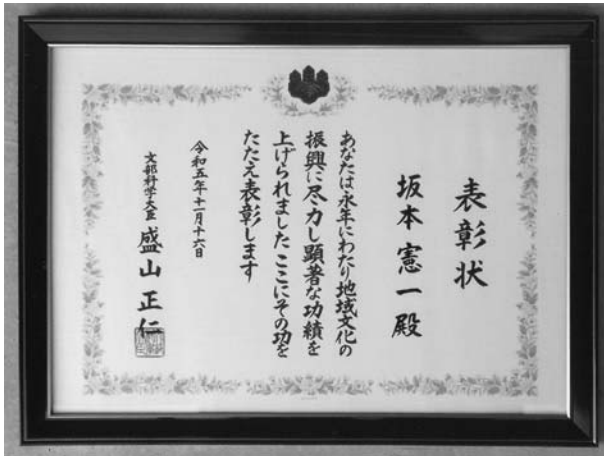 表彰状
坂本憲一殿
あなたは永年にわたり地域文化の
振興に尽力し顕著な功績を
上げられました ここにその功を
たたえ表彰します
令和五年十一月十六日
文部科学大臣 盛山正仁